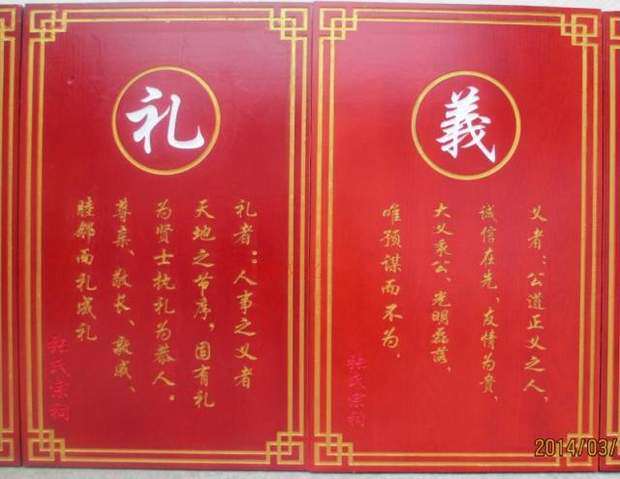 義
义者：公道正义之人、
诚信在先、友情为贵、
大义秉公、光明磊落、
唯预谋而不为.
氏宗祠
礼
礼者：人事之义者
天地之节序，固有礼
为贤士执礼为恭人。
尊亲、敬长、敦戚、
睦邻而礼成礼
氏宗祠
2014/03/